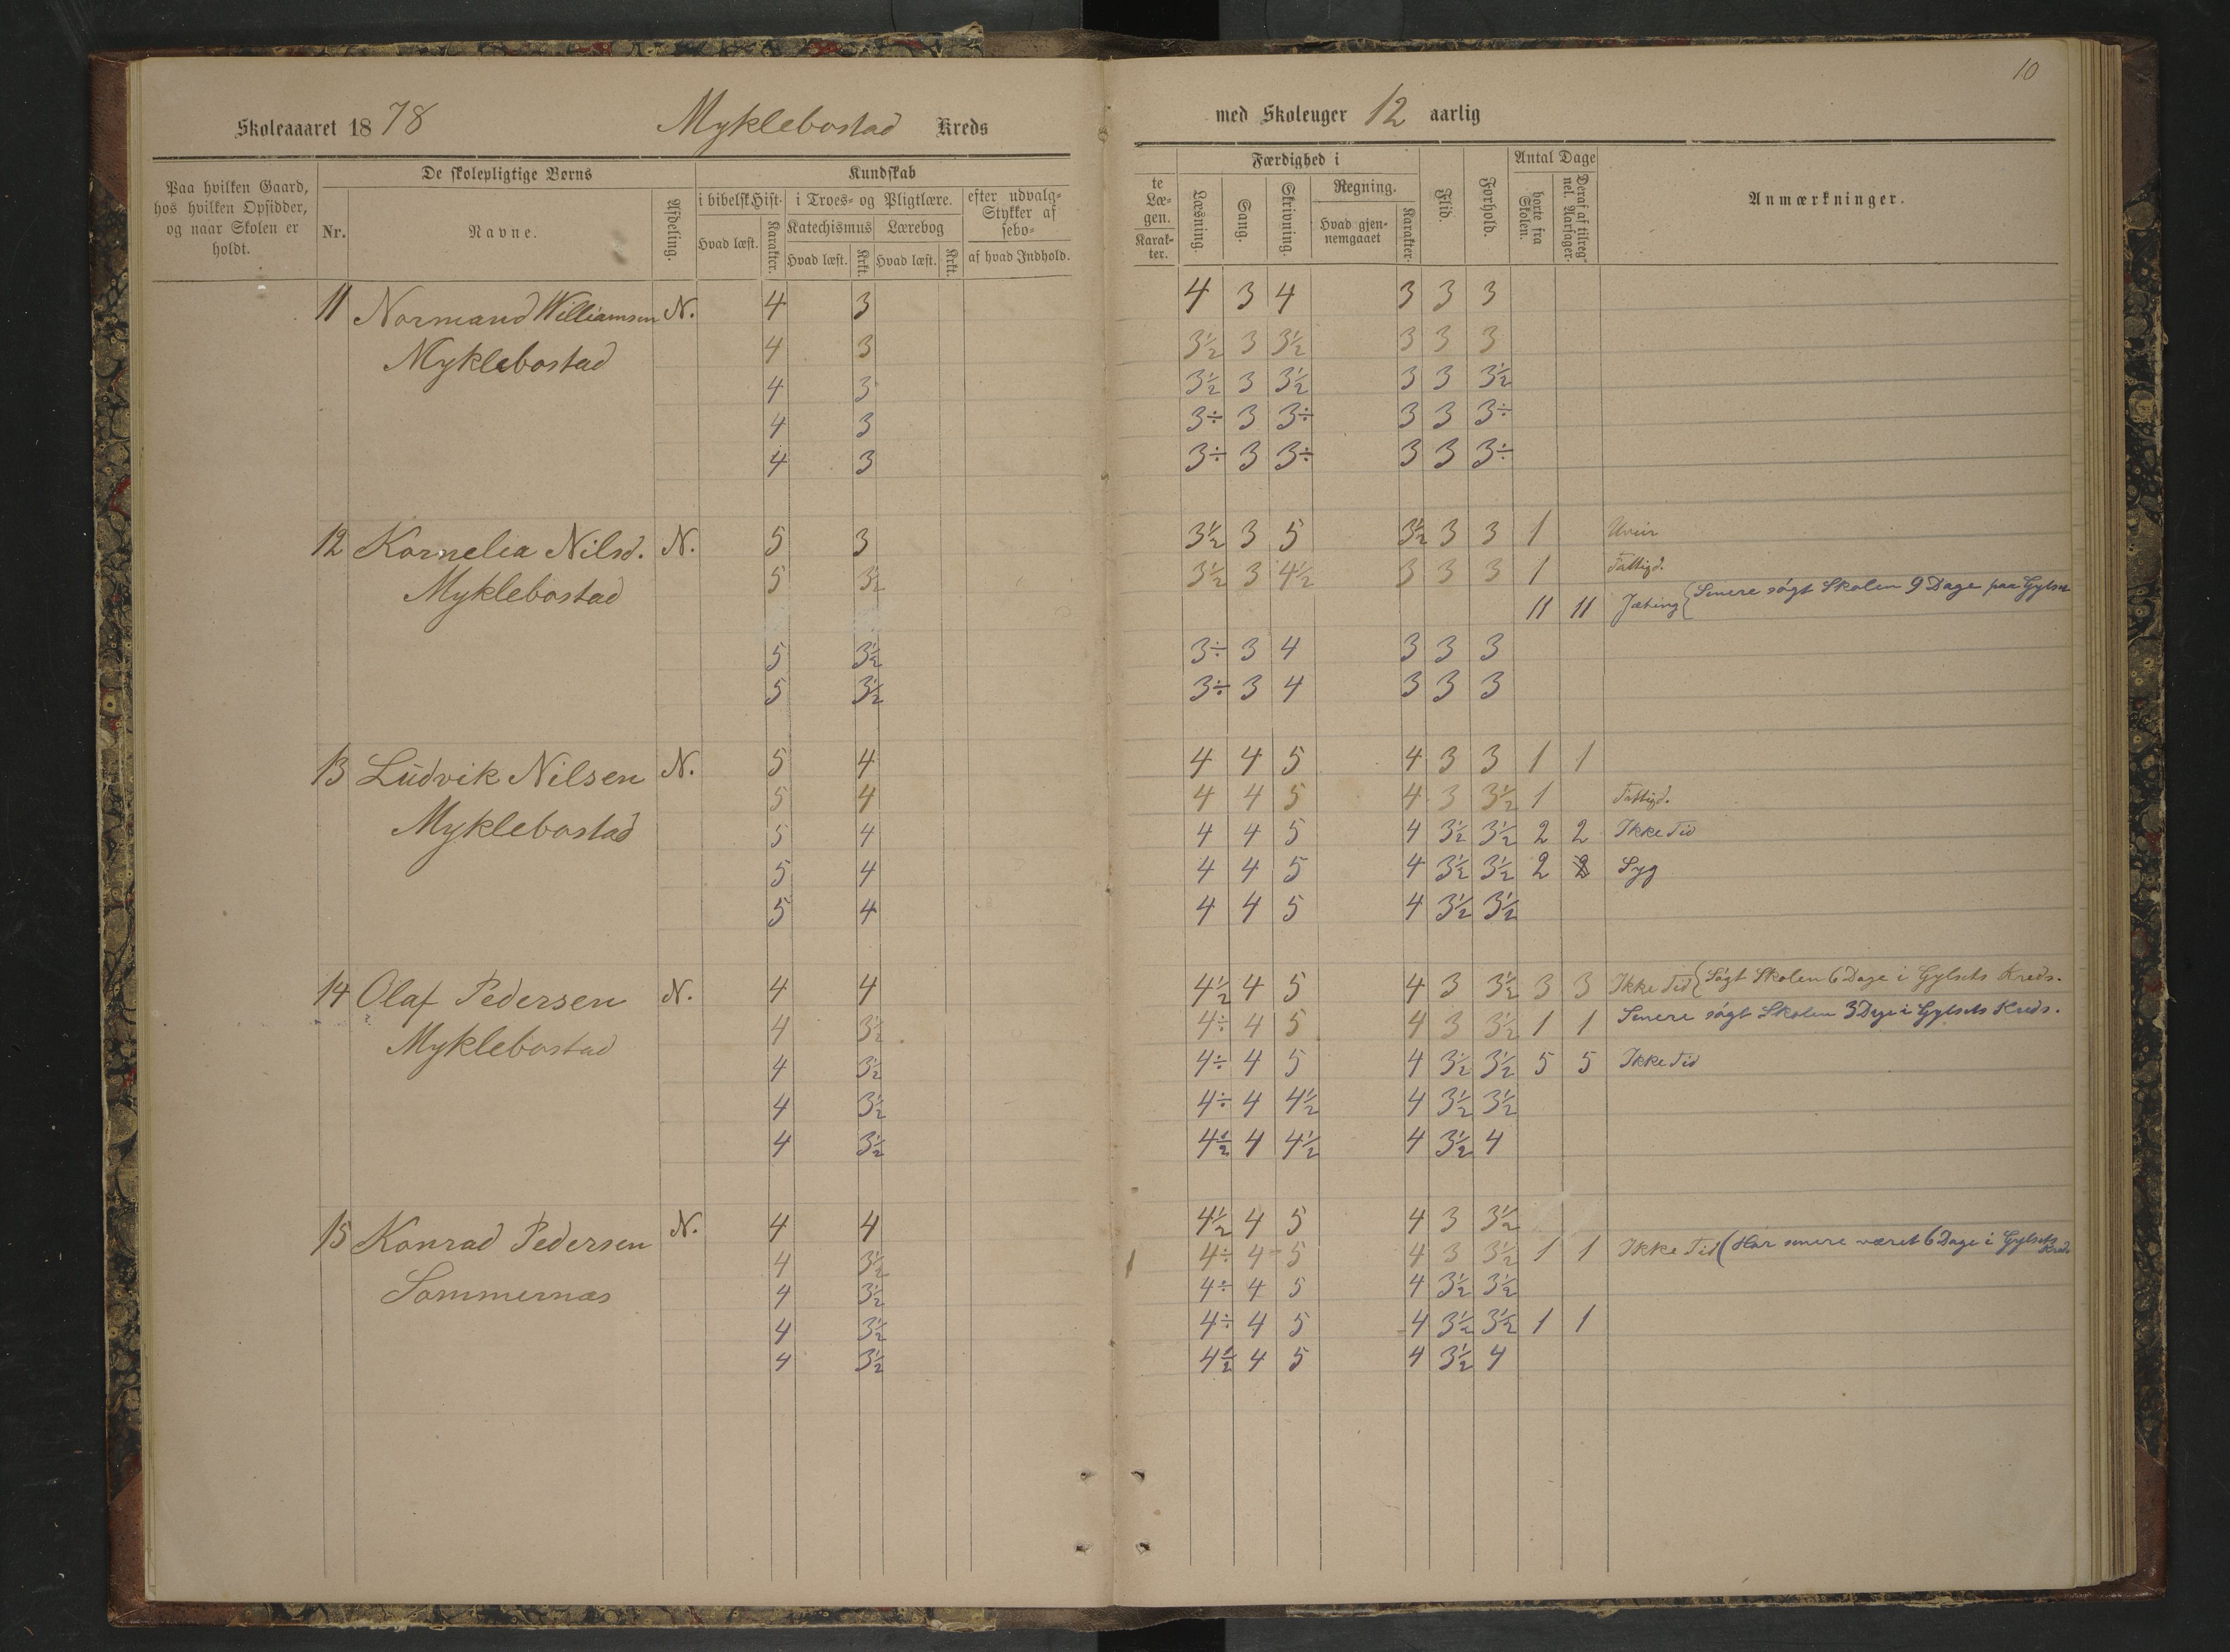 10
Skoleaaaret 1878 Myklebostad Kreds
med Skoleuger 12 aarlig
Paa hvilken Gaard, hos hvilken Opsidder, og naar Skolen er holdt.
De skolepligtige Børns
Nr.
Navne.
Afdeling.
Kundskab
i bibelsk Hist.
Hvad læst.
Karakter.
i Troes- og Pligtlære.
Katechismus
Hvad læst.
Krkt.
Lærebog
Hvad læst.
Krkt.
efter udvalg-
Stykker af
sebo-
af hvad Indhold.
te
Læ-
gen.
Karak-
ter.
Færdighed i
Læsning.
Sang.
Skrivning.
Regning.
Hvad gjen-
nemgaaet
Karakter.
Flid.
Forhold.
Antal Dage
borte fra Skolen.
Deraf af tilreg-
nel. Aarsager.
Anmærkninger.
11 Normand Williamsen N. 4 3 4 3 4 3 3 3
Myklebostad 4 3 3½ 3 3½ 3 3 3
4 3 3½ 3 3½ 3 3 3½
4 3 3÷ 3 3÷ 3 3 3÷
4 3 3÷ 3 3÷ 3 3 3÷
12 Kornelia Nilsd. N. 5 3 3½ 3 5 3½ 3 3 1 Uveir
Myklebostad 5 3½ 3½ 3 4½ 3 3 3 1 Fattigd.
11 11 Jæting { Senere søgt Skolen 9 Dage paa Gylset
5 3½ 3÷ 3 4 3 3 3
5 3½ 3÷ 3 4 3 3 3
13 Ludvik Nilsen N. 5 4 4 4 5 4 3 3 1 1
5 4 4 4 5 4 3 3½ 1 Fattigd.
Myklebostad 5 4 4 4 5 4 3½ 3½ 2 2 Ikke Tid
5 4 4 4 5 4 3½ 3½ 2 2 Syg
5 4 4 4 5 4 3½ 3½
14 Olaf Pedersen N. 4 4 4½ 4 5 4 3 3½ 3 3 Ikke Tid { Søgt Skolen 6 Dage i Gylsets Kreds.
Myklebostad 4 3½ 4÷ 4 5 4 3 3½ 1 1 Senere søgt Skolen 3 Dage i Gylsets Kreds.
4 3½ 4÷ 4 5 4 3½ 3½ 5 5 Ikke Tid
4 3½ 4÷ 4 4½ 4 3½ 3½
4 3½ 4½ 4 4½ 4 3½ 4
15 Konrad Pedersen N. 4 4 4½ 4 5 4 3 3½
4 3½ 4÷ 4 5 4 3 3½ 1 1 Ikke Tid ( Har senere været 6 Dage i Gylsets Kreds
Sommernæs 4 3½ 4÷ 4 5 4 3½ 3½
4 3½ 4÷ 4 5 4 3½ 3½ 1 1
4 3½ 4½ 4 5 4 3½ 4